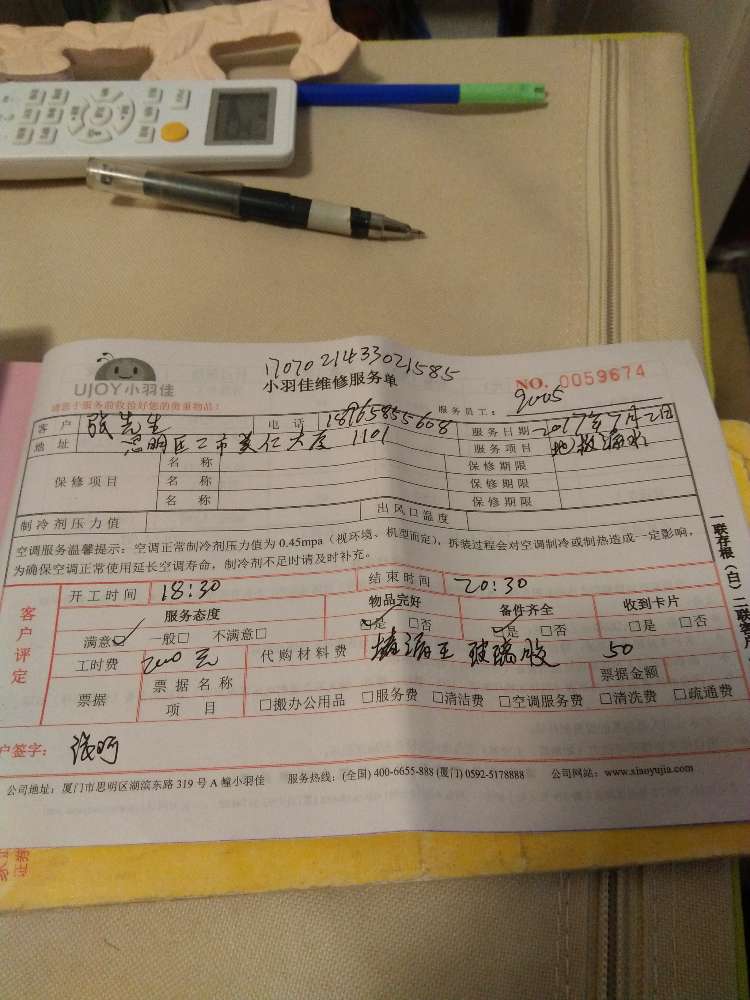 17070214433021585
UJOY小羽佳
小羽佳维修服务单
NO. 0059674
请您于服务前收拾好您的贵重物品!
服务员工: 9005
客 户 张先生 电 话 18965855608 服务日期 2017年7月2日
地 址 思明区工市美仁大厦 1101 服务项目 地板漏水
保修项目
名 称 保修期限
名 称 保修期限
名 称 保修期限
制冷剂压力值 出风口温度
空调服务温馨提示:空调正常制冷剂压力值为 0.45mpa(视环境、机型而定),拆装过程会对空调制冷或制热造成一定影响,
为确保空调正常使用延长空调寿命,制冷剂不足时请及时补充。
客户评定
开工时间 18:30 结束时间 20:30
服务态度 物品完好 备件齐全 收到卡片
满意☑ 一般□ 不满意□ ☑是 □否 ☑是 □否 □是 □否
工时费 200元 代购材料费 堵漏王 玻璃胶 50
票据 票据名称 票据金额
项 目 □搬办公用品 □服务费 □清洁费 □空调服务费 □清洗费 □疏通费
户签字:
公司地址:厦门市思明区湖滨东路 319 号 A 幢小羽佳 服务热线:(全国) 400-6655-888 (厦门) 0592-5178888 公司网站:www.xiaoyujia.com
一联存根(白) 二联客户